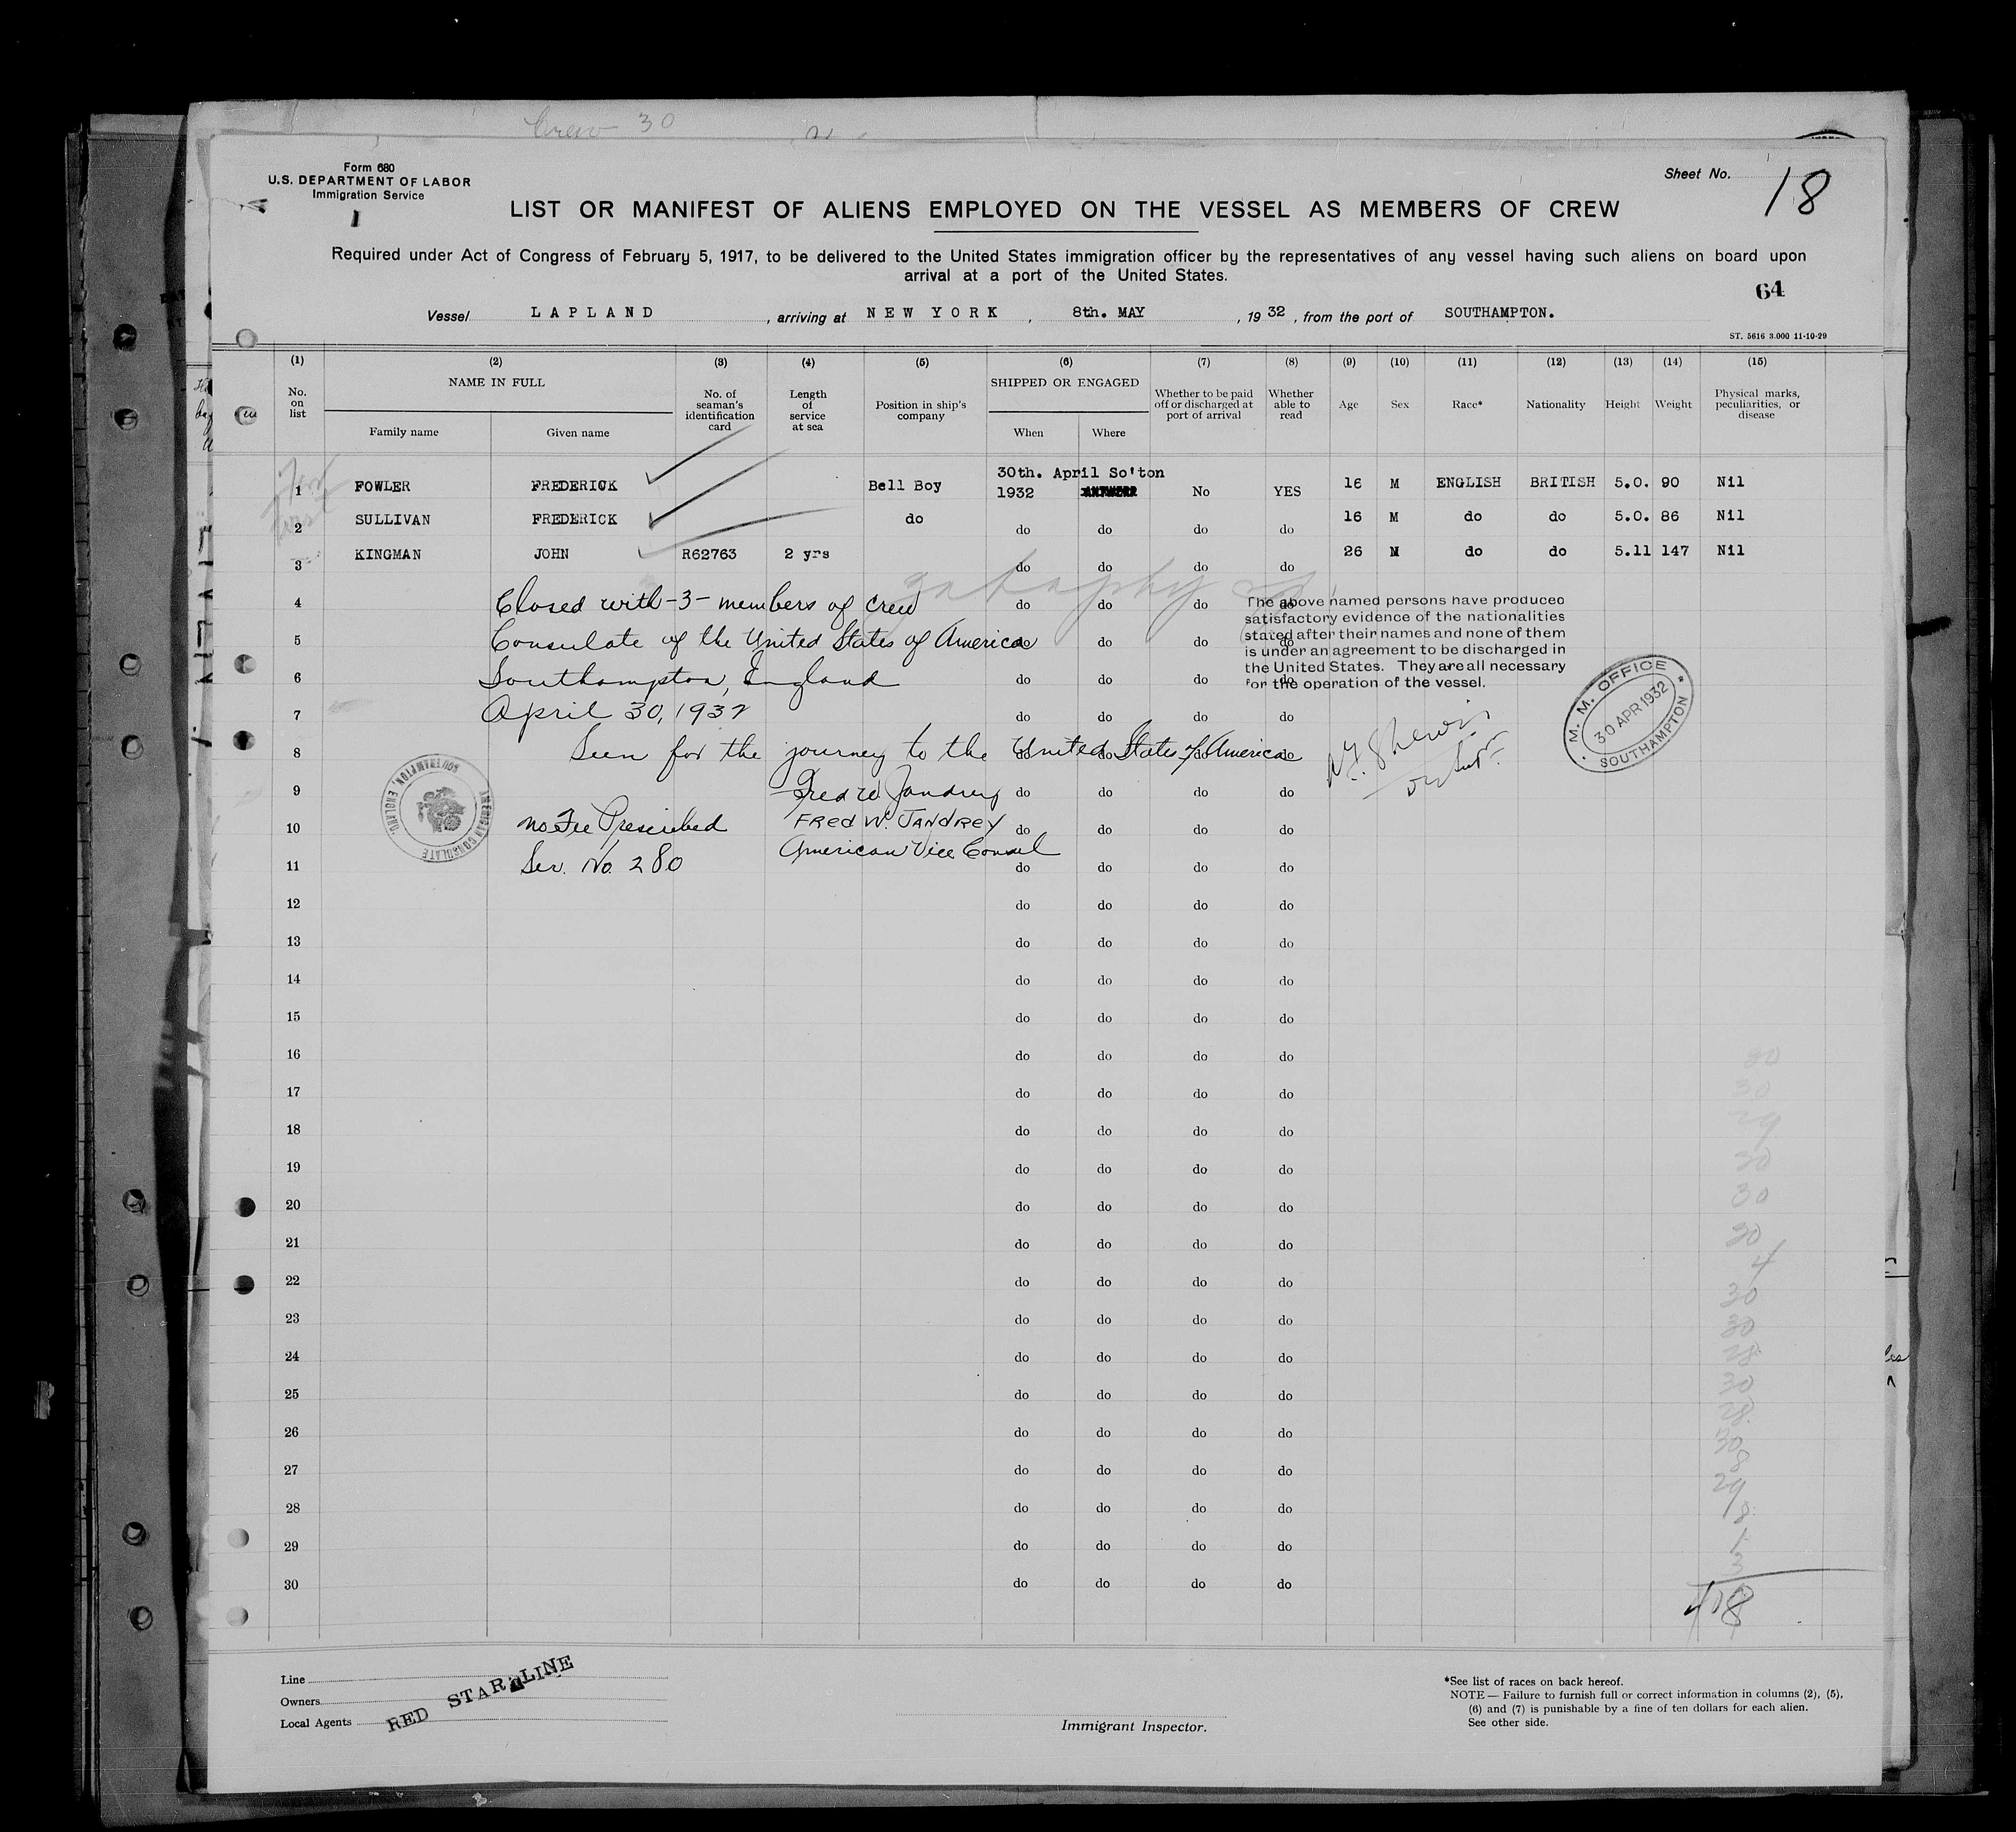 Crew 30
Form 680
U.S. DEPARTMENT OF LABOR
Immigration Service
1
Sheet No. 18
LIST OR MANIFEST OF ALIENS EMPLOYED ON THE VESSEL AS MEMBERS OF CREW
Required under Act of Congress of February 5, 1917, to be delivered to the United States immigration officer by the representatives of any vessel having such aliens on board upon
arrival at a port of the United States.
64
Vessel LAPLAND, arriving at NEW YORK, 8th. MAY, 1932, from the port of SOUTHAMPTON.
ST. 5616 3.000 11-10-29
(1) (2) (3) (4) (5) (6) (7) (8) (9) (10) (11) (12) (13) (14) (15)
No. on list
NAME IN FULL
Family name Given name
No. of seaman's identification card
Length of service at sea
Position in ship's company
SHIPPED OR ENGAGED
When Where
Whether to be paid off or discharged at port of arrival
Whether able to read
Age Sex Race* Nationality Height Weight
Physical marks, peculiarities, or disease
1 FOWLER FREDERICK Bell Boy 30th. April 1932 So'ton ANTWERP No YES 16 M ENGLISH BRITISH 5.0. 90 Nil
2 SULLIVAN FREDERICK do do do do do 16 M do do 5.0. 86 Nil
3 KINGMAN JOHN R62763 2 yrs do do do do 26 M do do 5.11 147 Nil
4 Closed with -3- members of crew do do do do
5 Consulate of the United States of America do do do do
6 Southampton, England do do do do
7 April 30, 1932 do do do do
8 Seen for the journey to the United States of America do do do do
9 Fred W. Jandrey do do do do
10 No Fee Prescribed FRED W. JANDREY do do do do
11 Ser. No. 280 American Vice Consul do do do do
The above named persons have produced
satisfactory evidence of the nationalities
stated after their names and none of them
is under an agreement to be discharged in
the United States. They are all necessary
for the operation of the vessel.
M. M. OFFICE
30 APR 1932
SOUTHAMPTON
AMERICAN CONSULATE
SOUTHAMPTON, ENGLAND.
12 do do do do
13 do do do do
14 do do do do
15 do do do do
16 do do do do
17 do do do do
18 do do do do
19 do do do do
20 do do do do
21 do do do do
22 do do do do
23 do do do do
24 do do do do
25 do do do do
26 do do do do
27 do do do do
28 do do do do
29 do do do do
30 do do do do
Line
Owners
Local Agents
RED STAR LINE
Immigrant Inspector.
*See list of races on back hereof.
NOTE — Failure to furnish full or correct information in columns (2), (5),
(6) and (7) is punishable by a fine of ten dollars for each alien.
See other side.